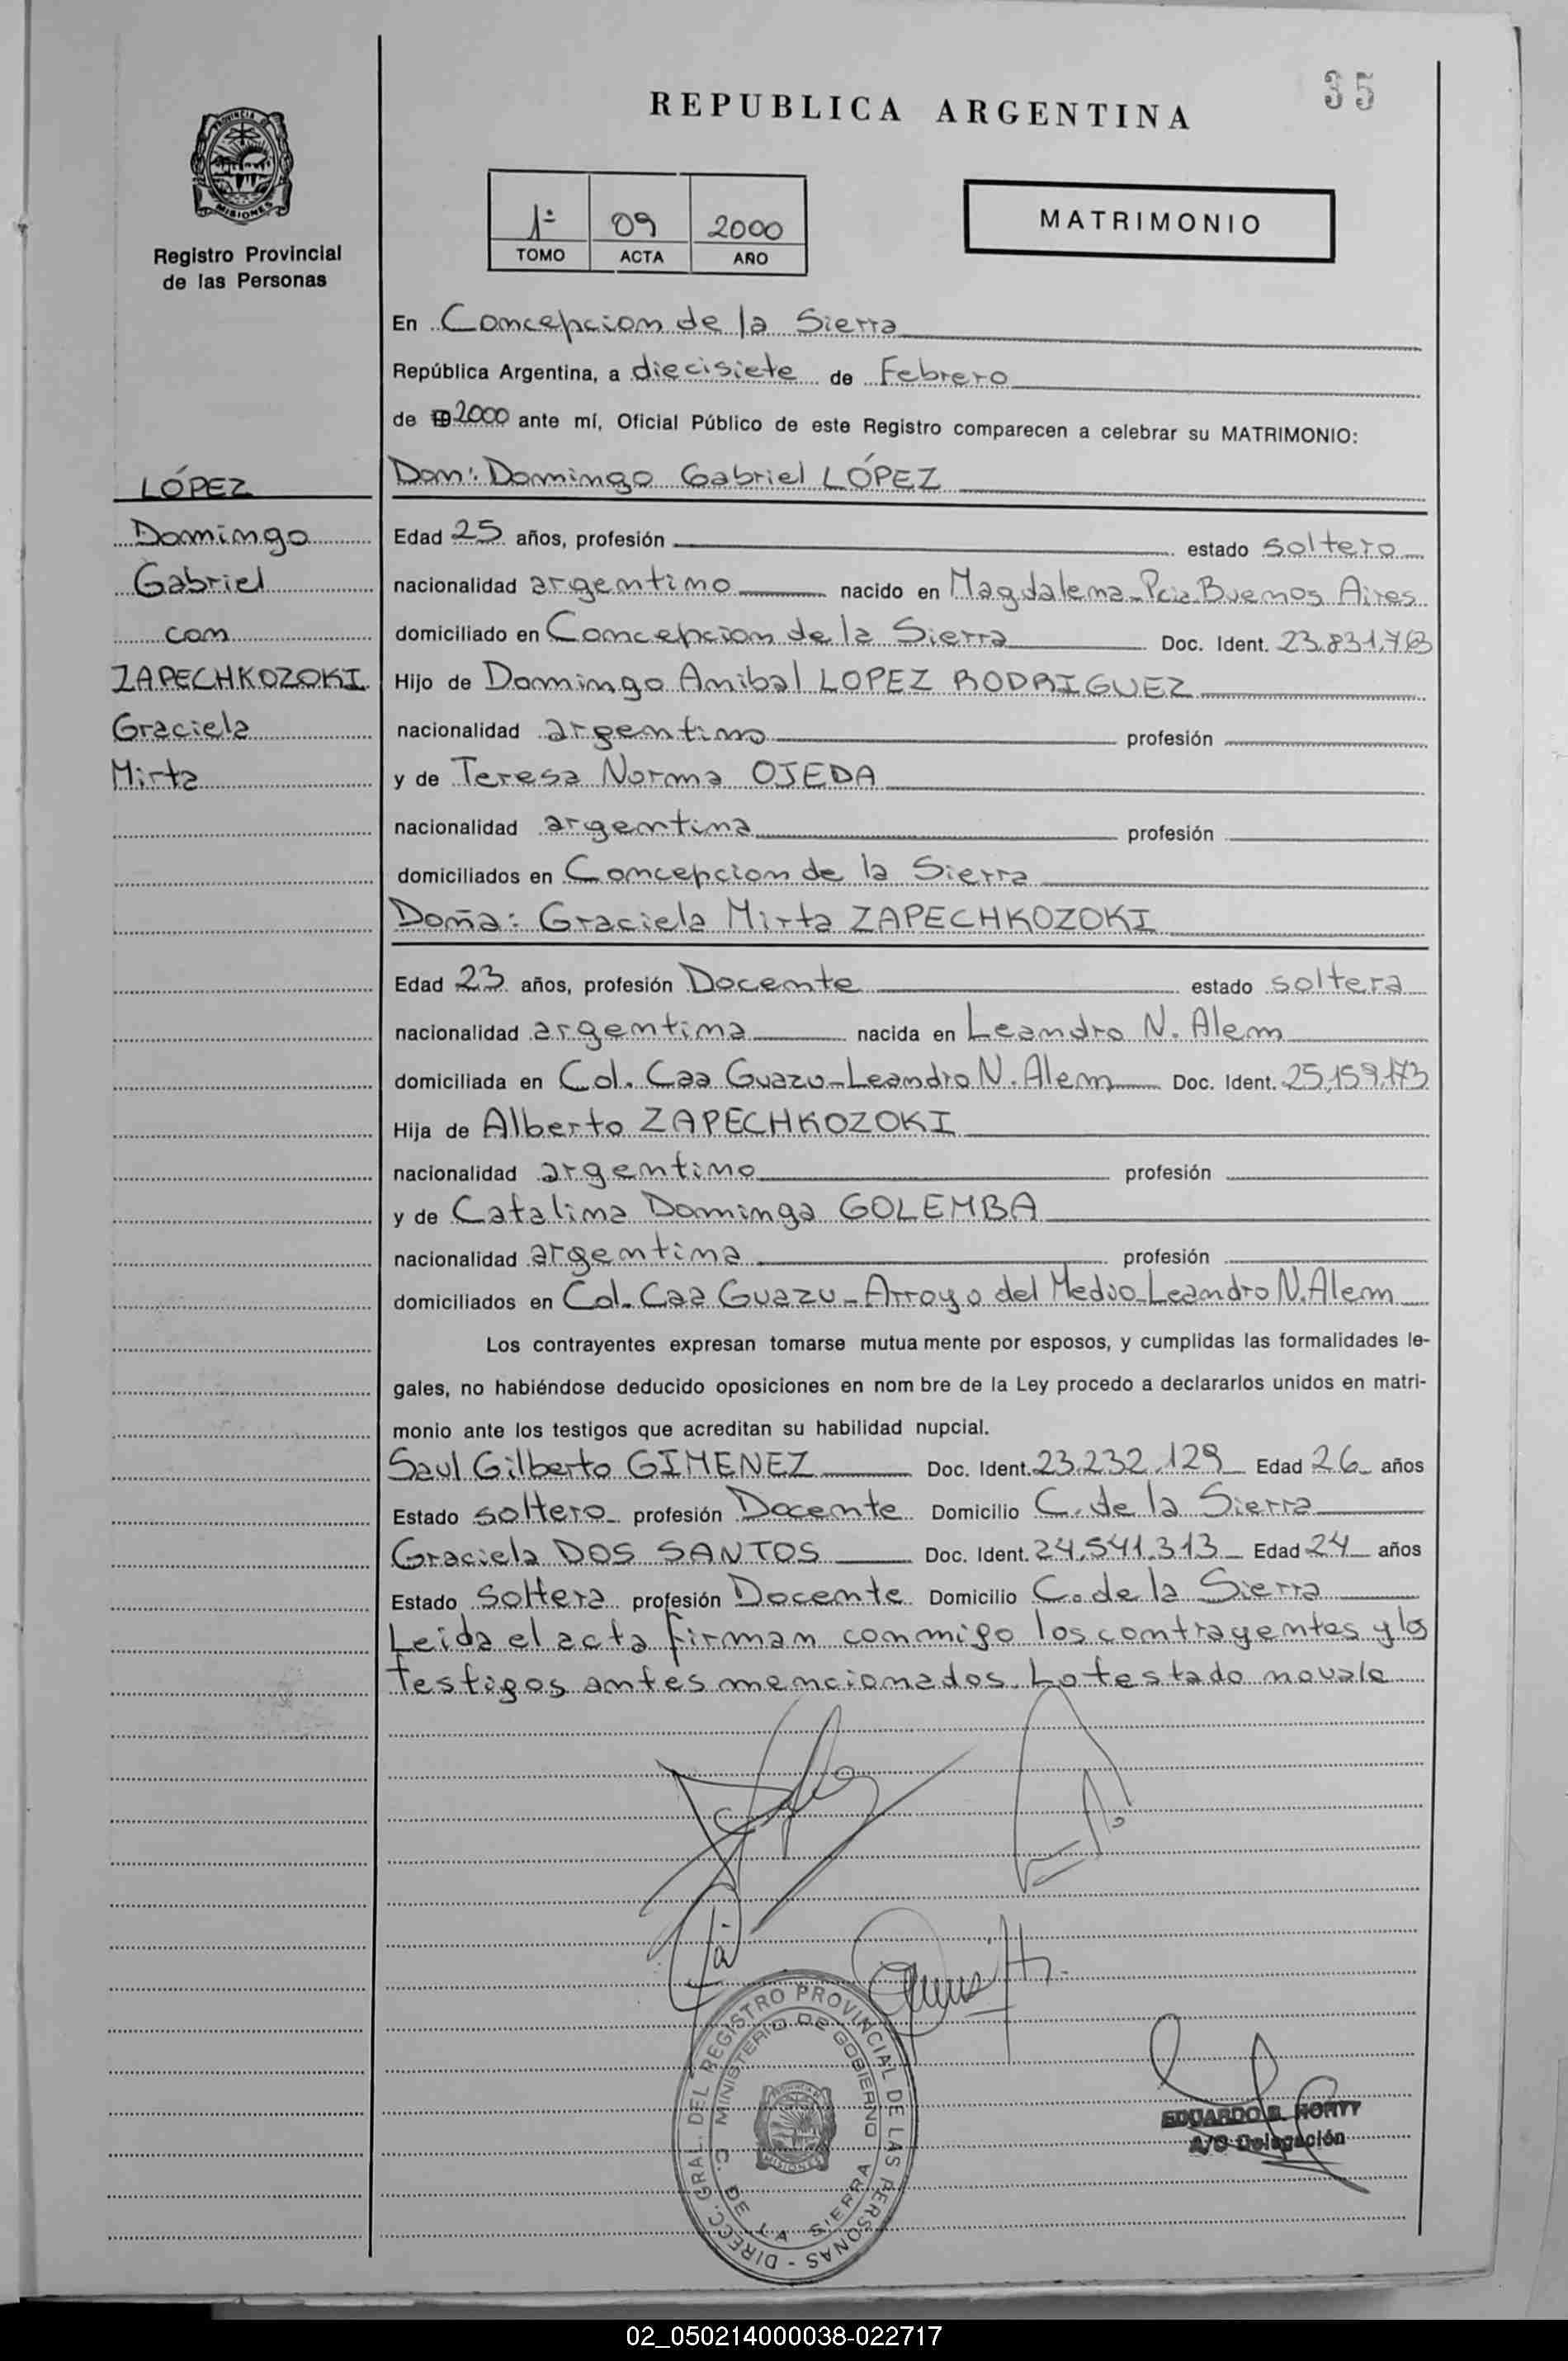 35
REPUBLICA ARGENTINA
PROVINCIA DE
MISIONES
Registro Provincial
de las Personas
1º 09 2000
TOMO ACTA AÑO
MATRIMONIO
En Concepcion de la Sierra
República Argentina, a diecisiete de Febrero
de 2000 ante mí, Oficial Público de este Registro comparecen a celebrar su MATRIMONIO:
LÓPEZ
Domingo
Gabriel
con
ZAPECHKOZOKI
Graciela
Mirta
Don: Domingo Gabriel LÓPEZ
Edad 25 años, profesión estado soltero
nacionalidad argentino nacido en Magdalena-Pcia.Buenos Aires
domiciliado en Concepcion de la Sierra Doc. Ident. 23.831.763
Hijo de Domingo Anibal LOPEZ RODRIGUEZ
nacionalidad argentino profesión
y de Teresa Norma OJEDA
nacionalidad argentina profesión
domiciliados en Concepcion de la Sierra
Doña: Graciela Mirta ZAPECHKOZOKI
Edad 23 años, profesión Docente estado soltera
nacionalidad argentina nacida en Leandro N. Alem
domiciliada en Col. Caa Guazu-Leandro N. Alem Doc. Ident. 25.159.173
Hija de Alberto ZAPECHKOZOKI
nacionalidad argentino profesión
y de Catalina Dominga GOLEMBA
nacionalidad argentina profesión
domiciliados en Col. Caa Guazu-Arroyo del Medio-Leandro N. Alem
Los contrayentes expresan tomarse mutua mente por esposos, y cumplidas las formalidades le-
gales, no habiéndose deducido oposiciones en nom bre de la Ley procedo a declararlos unidos en matri-
monio ante los testigos que acreditan su habilidad nupcial.
Saul Gilberto GIMENEZ Doc. Ident. 23.232.129 Edad 26 años
Estado soltero profesión Docente Domicilio C. de la Sierra
Graciela DOS SANTOS Doc. Ident. 24.541.313 Edad 24 años
Estado soltera profesión Docente Domicilio C. de la Sierra
Leida el acta firman conmigo los contrayentes y los
testigos antes mencionados. Lo testado no vale
DIRECC. GRAL. DEL REGISTRO PROVINCIAL DE LAS PERSONAS -
MINISTERIO DE GOBIERNO
C. DE LA SIERRA
MISIONES
EDUARDO
A/C Delegación
02_050214000038-022717